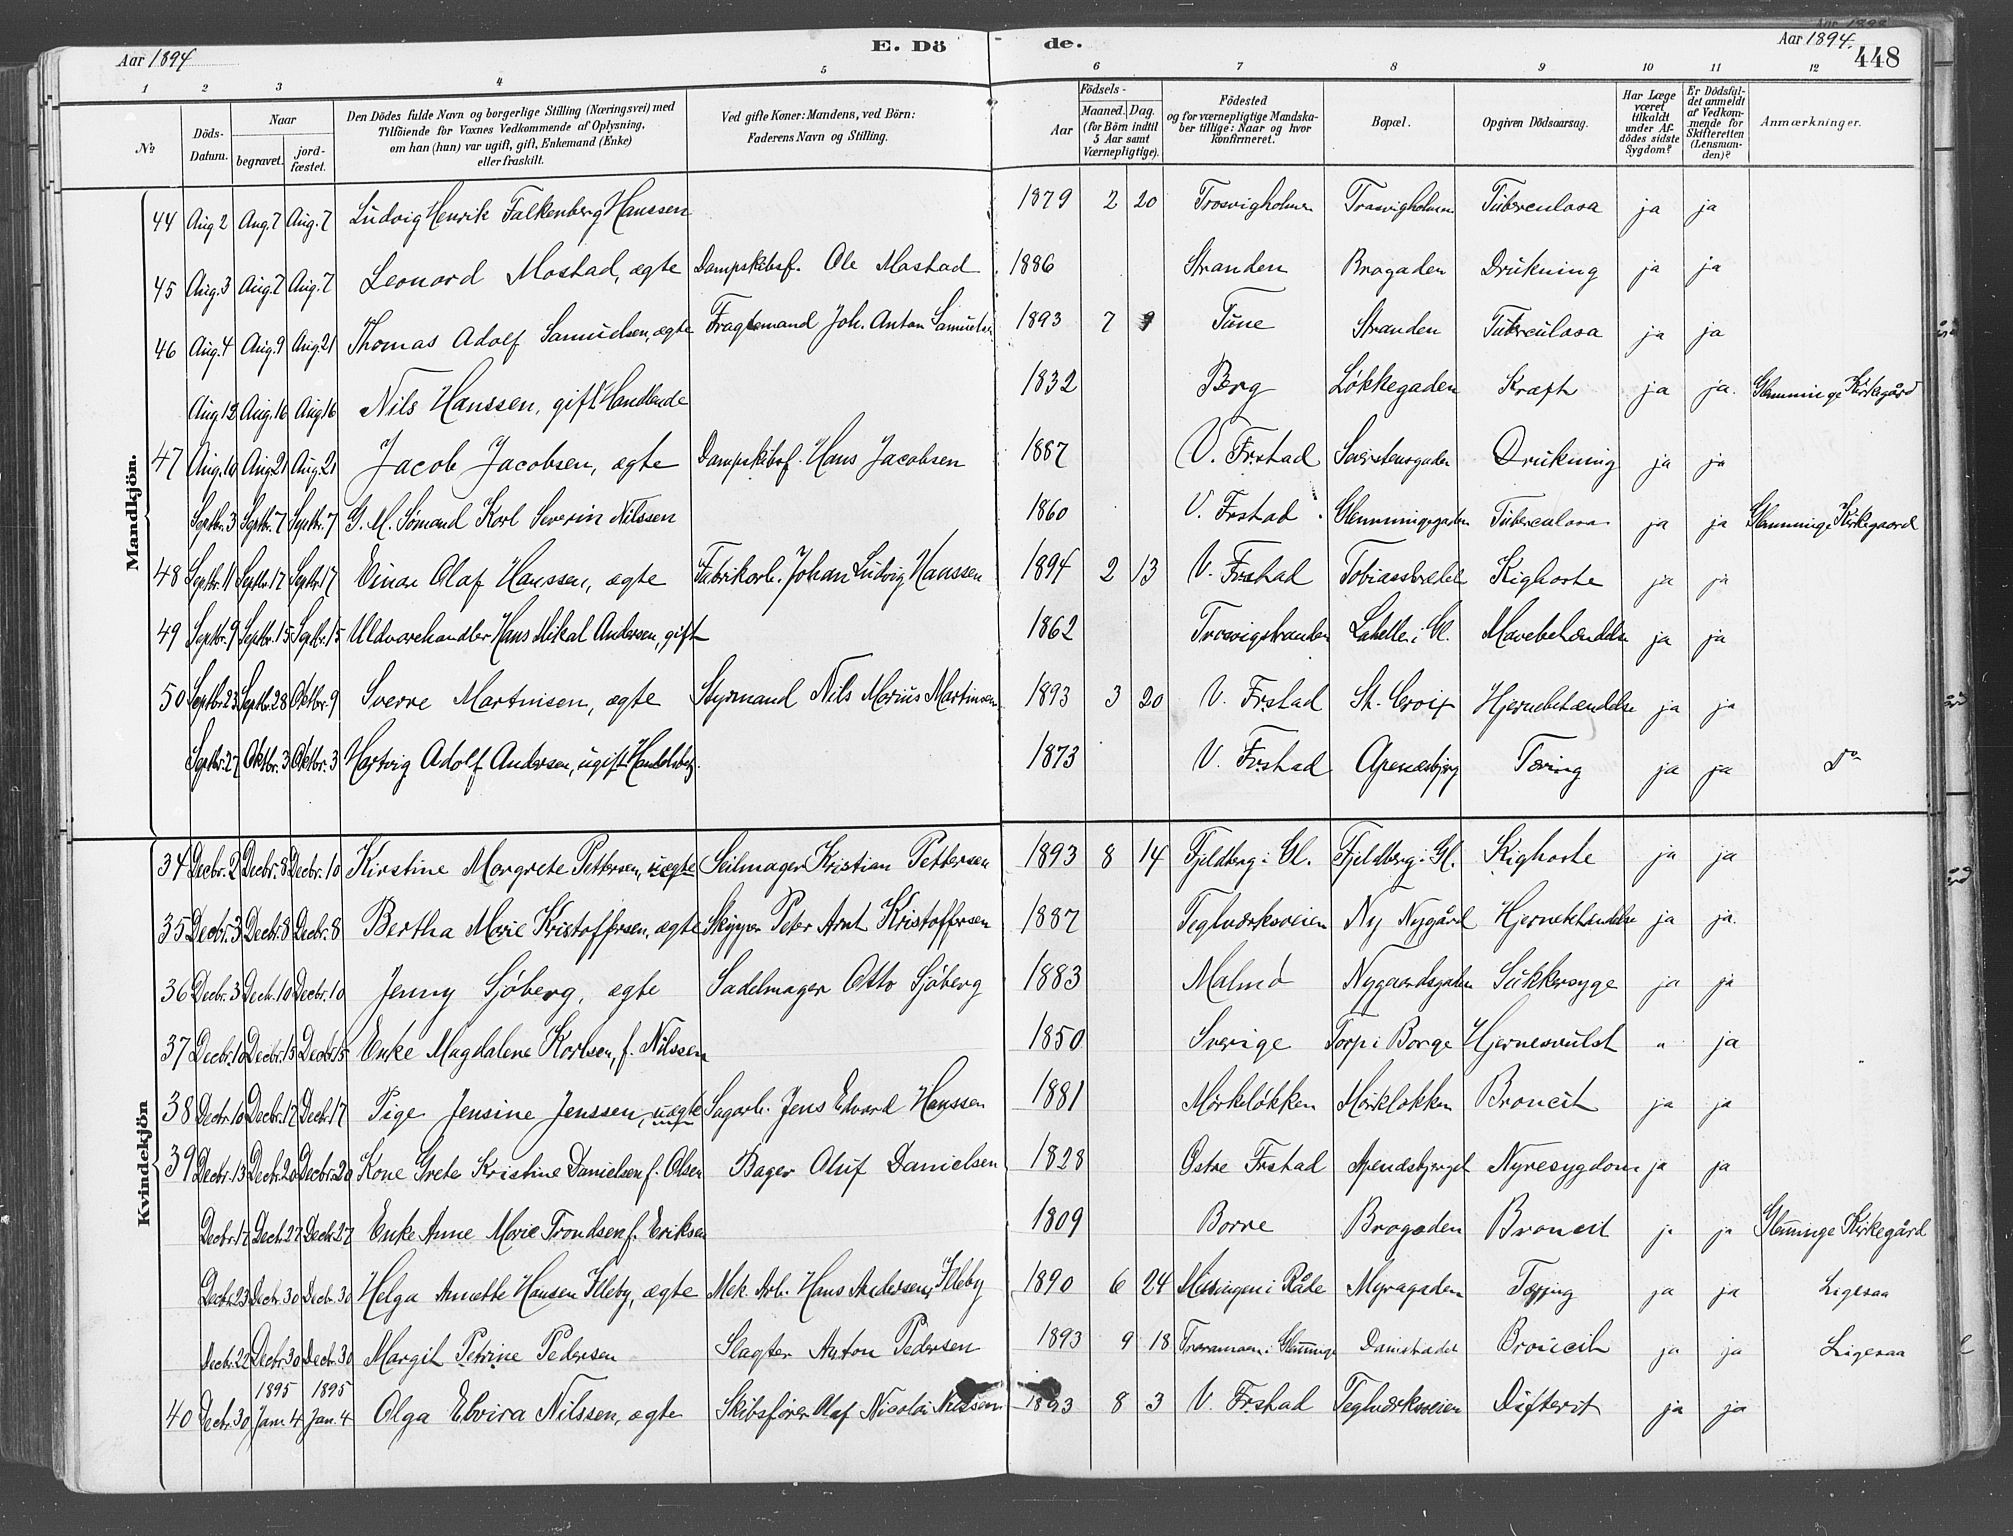 Aar 1894 E. Dö de. Aar 1894. 448
1 2 3 4 5 6 7 8 9 10 11 12
№ Döds-Datum. Naar begravet. jord-fæstet. Den Dödes fulde Navn og borgerlige Stilling (Næringsvei) med Tilföiende for Voxnes Vedkommende af Oplysning, om han (hun) var ugift, gift, Enkemand (Enke) eller fraskilt. Ved gifte Koner: Mandens, ved Börn: Faderens Navn og Stilling. Födsels- Aar Maaned. Dag. (for Börn indtil 5 Aar samt Værnepligtige). Födested og for værnepligtige Mandskaber tillige: Naar og hvor konfirmeret. Bopæl. Opgiven Dödsaarsag. Har Læge været tilkaldt under Afdödes sidste Sygdom? Er Dödsfaldet anmeldt af Vedkommende for Skifteretten (Lensmanden)? Anmærkninger.
Mandkjön.
44 Aug 2 Aug. 7 Aug. 7 Ludvig Henrik Falkenberg Hanssen 1879 2 20 Trosvigholmen Trosvigholmen Tuberculosa ja ja
45 Aug. 3 Aug. 7 Aug. 7 Leonard Mostad, ægte Dampskibsf. Ole Mostad 1886 Stranden Brogaden Drukning ja ja
46 Aug. 4 Aug. 9 Aug. 21 Thomas Adolf Samuelsen, ægte Fragtemand Joh. Anton Samuelsen 1893 7 9 Tune Stranden Tuberculosa ja ja
Aug. 12 Aug. 16 Aug 16 Nils Hanssen, gift Handlende 1832 Berg Løkkegaden Kræft ja ja. Glemminge Kirkegård
47 Aug. 10 Aug. 21 Aug. 21 Jacob Jacobsen, ægte Dampskibsf. Hans Jacobsen 1887 V. Frstad Drukning ja ja
Septbr. 3 Septbr. 7 Septbr. 7 G. M. Sømand Karl Severin Nilssen 1860 V. Frstad Glemmingegaden Tuberculosa ja ja Glemminge Kirkegaard
48 Septbr. 11 Septbr. 17 Septbr. 17 Einar Olaf Hanssen, ægte Fabrikarb. Johan Ludvig Hanssen 1894 2 13 V. Frstad Kighoste ja ja
49 Septbr. 9 Septbr. 15 Septbr. 15 Uldvarehandler Hans Mikal Andersen, gift 1862 Trosvigstranden Labelle i Gl. Mavebetændelse ja ja
50 Septbr. 23 Septbr. 28 Oktbr. 9 Sverre Martinsen, ægte Styrmand Nils Marius Martinsen 1893 3 20 V. Frstad St. Croix Hjernebetændelse ja ja
Septbr. 27 Oktbr. 3 Oktbr. 3 Hartvig Adolf Andersen, ugift Handelsbetj. 1873 V. Frstad Apenesbjerg Tæring ja ja Do
Kvindekjön
34 Decbr. 2 Decbr. 8 Decbr. 10 Kirstine Margrete Pettersen, uægte Seilmager Kristian Pettersen 1893 8 14 Fjeldberg i Gl. Fjeldberg i Gl. Kighoste ja ja
35 Decbr. 3 Decbr. 8 Decbr. 8 Bertha Marie Kristoffersen, ægte Skipper Peter Arnt Kristoffersen 1887 Teglværksveien Ny Nygård Hjernebetændelse ja ja.
36 Decbr. 3 Decb. 10 Decbr. 10 Jenny Sjøberg, ægte Sadelmager Otto Sjøberg 1883 Malmö Nygaardsgaden Sukkersyge ja ja
37 Decbr. 10 Decbr. 15 Decbr. 15 Enke Magdalene Karlsen, f. Nilssen 1850 Sverige Torp i Borge Hjernesvulst " ja
38 Decbr. 10 Decbr. 17 Decb. 17 Pige Jensine Jenssen, uægte Sagarb. Jens Edvard Hanssen 1881 Mørkeløkken Mørkeløkken Broncit ja ja
39 Decbr. 13 Decbr. 20 Decbr. 20 Kone Grete Kristine Danielsen f. Olsen Bager Oluf Danielsen 1828 Østre Frstad Apenesbjerget Nyresygdom ja ja
Decbr. 17 Decb. 27 Decb. 27 Enke Anne Marie Trondsen f. Eriksen 1809 Borre Brogaden Broncit ja ja Glemminge Kirkegård
Decbr. 23 Decb. 30 Decb. 30 Helga Annette Hansen Illeby, ægte Mek. Arb. Hans Andersen Illeby 1890 6 24 Missingen i Råde Myragaden Tæring ja ja Ligesaa
Decbr. 22 Decbr. 30 Decb. 30 Margit Petrine Pedersen Slagter Anton Pedersen 1893 9 18 Damstredet Broncit ja ja Ligesaa
1895 1895
40 Decbr. 30 Jan. 4 Jan. 4 Olga Elvira Nilssen, ægte Skibsfører Olaf Nicolai Nilssen 1893 8 3 V. Frstad Teglværksveien Difterit ja ja